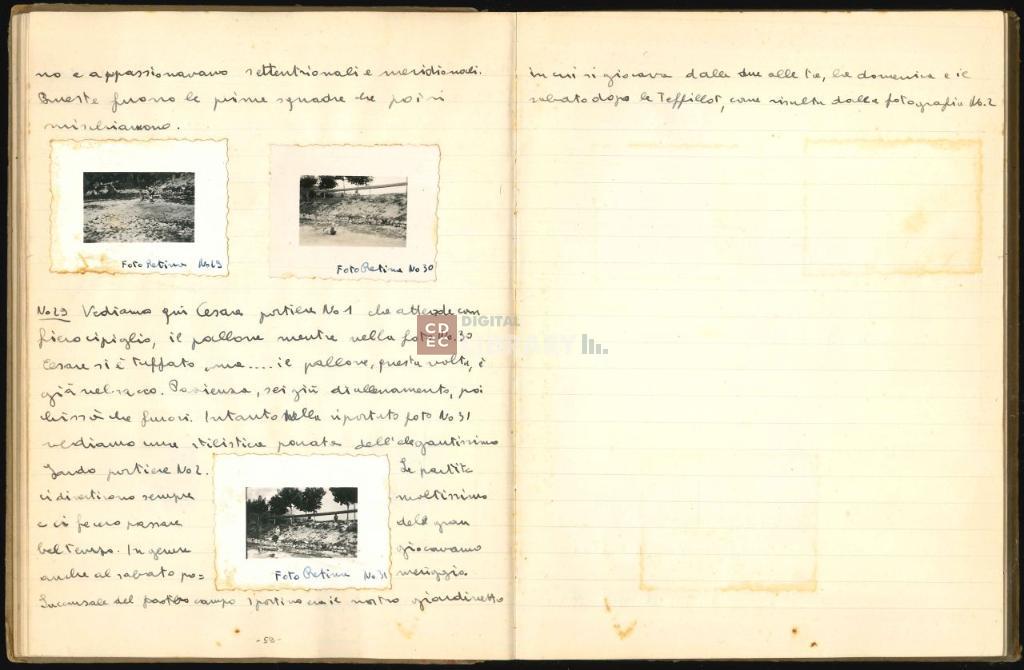 no e appassionavano settentrionali e meridionali.
Queste furono le prime squadre che poi si
mischiarono.
Foto Retina No 29
Foto Retina No 30
No 29 Vediamo qui Cesare portiere No 1 che attende con
fiero cipiglio, il pallone mentre nella foto No. 30
Cesare si è tuffato, ma.... il pallone, questa volta, è
già nel sacco. Pazienza, sei giù di allenamento, poi
chissà che fuori. Intanto nella riportata foto No 31
vediamo una stilistica parata dell'elegantissimo
portiere No 2. Le partite
ci divertirono sempre moltissimo
e ci fecero passare dell gran
bel tempo. In genere giocavamo
anche al sabato po= meriggio.
Succursale del campo sportivo era il nostro giardinetto
Foto Retina No 31
- 58 -
in cui si giocava dalle due alle tre, la domenica e il
sabato dopo le Teffillot, come risulta dalla fotografia No. 2
CD
EC
DIGITAL
LIBRARY